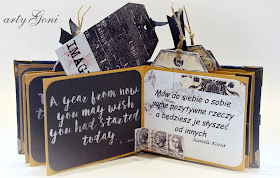 arty Goni
IMAG
A year from now
you may wish
you had started
today.
Mów do siebie o sobie
same pozytywne rzeczy
a będziesz je słyszeć
od innych